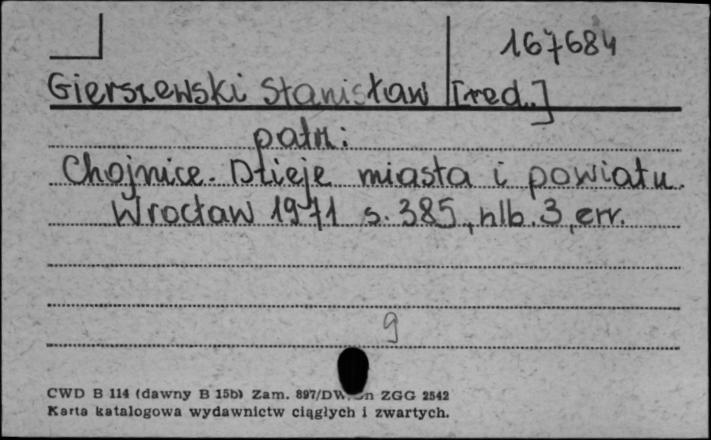 167684
Gierszewski Stanisław [red..]
patrz:
Chojnice. Dzieje miasta i powiatu.
Wrocław 1971 s. 385, nlb. 3, err.
9
CWD B 114 (dawny B 15b) Zam. 897/DW. ZGG 2542
Karta katalogowa wydawnictw ciągłych i zwartych.